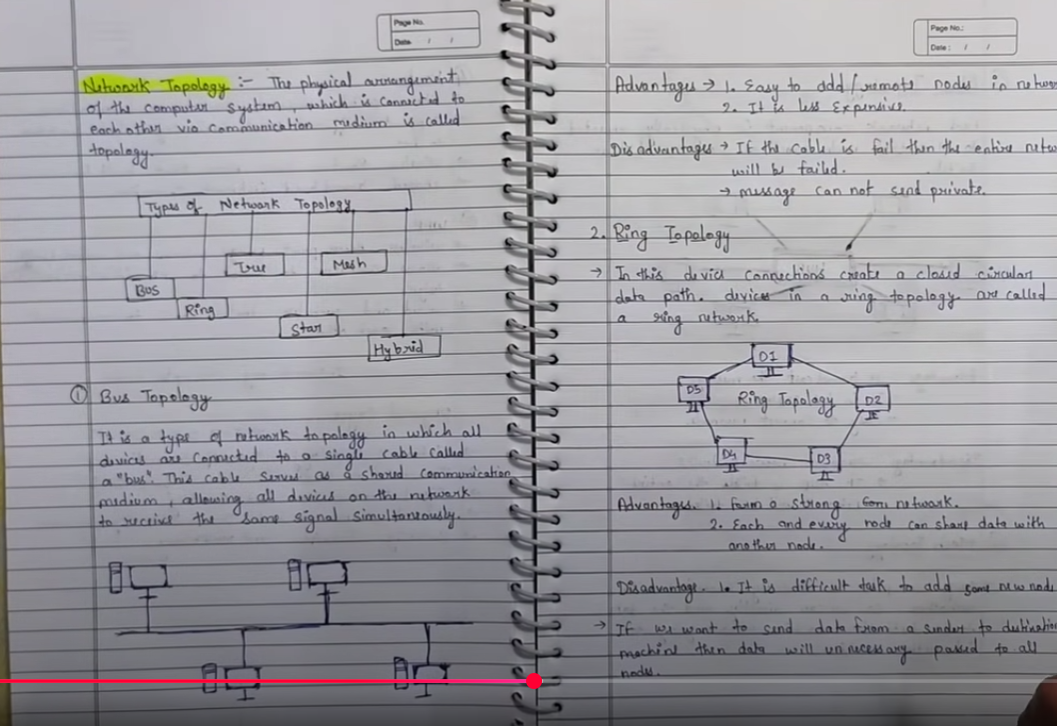 Page No.
Date / /
Network Topology :- The physical arrangement
of the computer system, which is connected to
each other via communication medium is called
topology.
Types of Network Topology
Tree
Mesh
Bus
Ring
Star
Hybrid
① Bus Topology
It is a type of network topology in which all
devices are connected to a single cable called
a "bus". This cable serves as a shared communication
medium, allowing all devices on the network
to receive the same signal simultaneously.
Page No.:
Date: / /
Advantages → 1. Easy to add/remote nodes in networ
2. It is less Expensive.
Disadvantages → If the cable is fail then the entire netw
will be failed.
→ message can not send private.
2. Ring Topology
→ In this device connections create a closed circular
data path. devices in a ring topology are called
a ring network
D1
D5
Ring Topology
D2
D4
D3
Advantages. 1. form a strong com network.
2. Each and every node can share data with
another node.
Disadvantage. 1. It is difficult task to add some new node
→ If we want to send data from a sender to destination
machine then data will unnecessary passed to all
nodes.